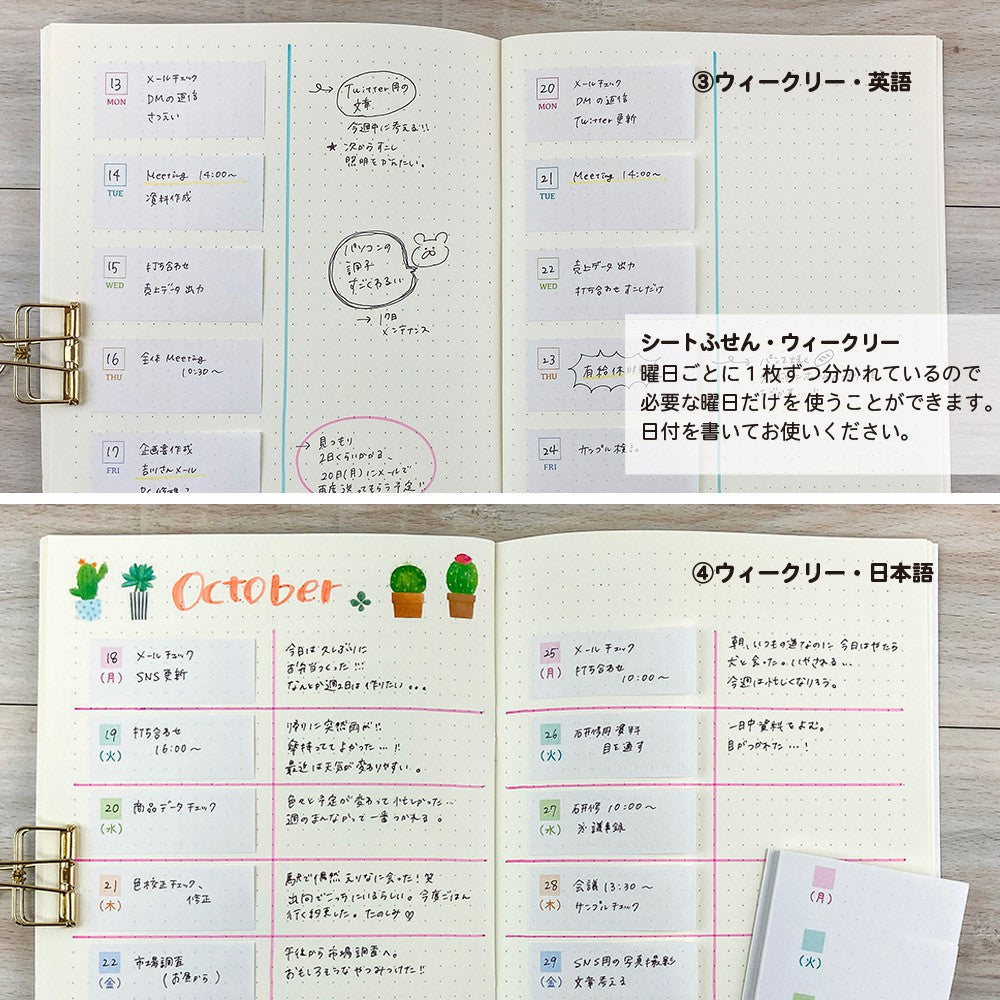 ③ウィークリー・英語
13
MON
メールチェック
DMの返信
さつえい
14
TUE
Meeting 14:00~
資料作成
15
WED
打ち合わせ
売上データ出力
16
THU
全体 Meeting
10:30~
17
FRI
企画書作成
吉川さんメール
Twitter用の
文章
今週中に考える!!
★ 次からすこし
照明をかえたい。
パソコンの
調子
すごくわるい
→ 17日
メンテナンス
→ 見つもり
2日くらいかかる、
20日(月)にメールで
再度送ってもらう予定!!
20
MON
メールチェック
DMの返信
Twitter更新
21
TUE
Meeting 14:00~
22
WED
売上データ出力
打ち合わせすこしだけ
23
THU
有給休
24
FRI
サンプル
シートふせん・ウィークリー
曜日ごとに1枚ずつ分かれているので
必要な曜日だけを使うことができます。
日付を書いてお使いください。
④ウィークリー・日本語
October
18
(月)
メールチェック
SNS更新
今日は久しぶりに
お弁当つくった!!!
なんとか週2日は作りたい...
19
(火)
打ち合わせ
16:00~
帰りに突然雨が!!
傘持っててよかった...!!
最近は天気が変わりやすい。
20
(水)
商品データチェック
色々と予定が変わって忙しかった...
週のまんなかって一番つかれる。
21
(木)
色校正チェック、
修正
駅で偶然えりなに会った!笑
出向でこっちにいるらしい。今度ごはん
行く約束した。たのしみ♡
22
(金)
市場調査
(お昼から)
午後から市場調査へ。
おもしろそうなやつみつけた!!
25
(月)
メールチェック
打ち合わせ
10:00~
朝、いつもの道なのに今日はやたら
犬と会った。いやされる...
今週は忙しくなりそう。
26
(火)
研修用資料
目を通す
一日中資料をよむ。
目がつかれた...!
27
(水)
研修 10:00~
※議事録
28
(木)
会議 13:30~
サンプルチェック
29
(金)
SNS用の写真撮影
文章考える
(月)
(火)